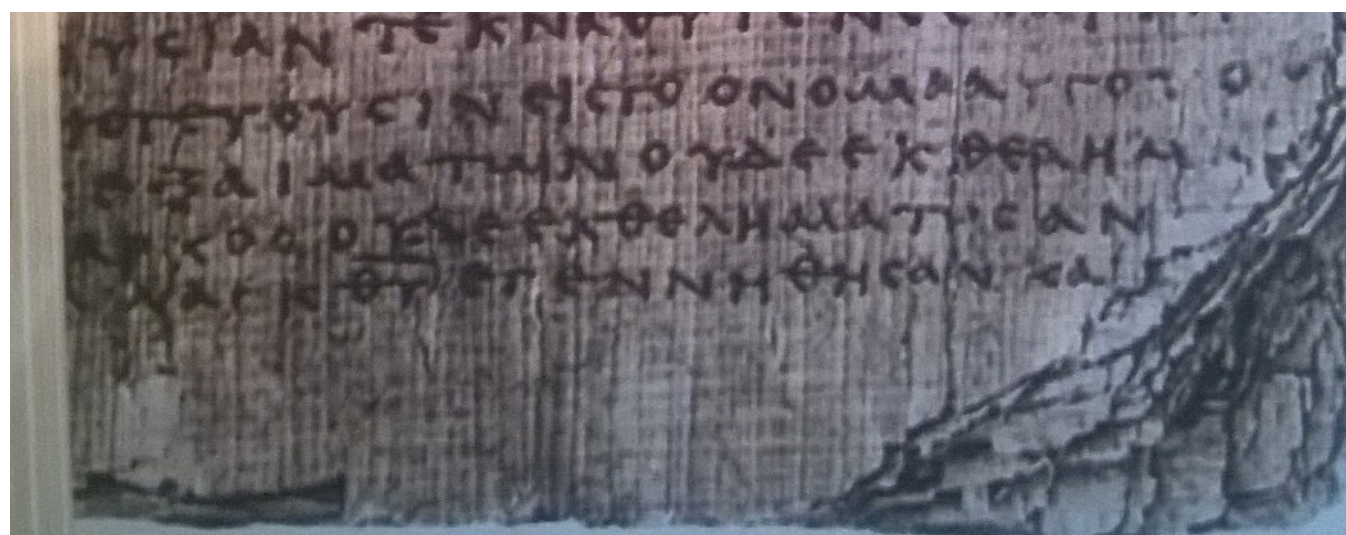 ΟΥCΙΑΝ ΤΕΚΝΑ ΘΥ
CΤΕΥΟΥCΙΝ ΕΙC ΤΟ ΟΝΟΜΑ ΑΥΤΟΥ
ΕΞ ΑΙΜΑΤΩΝ ΟΥΔΕ ΕΚ ΘΕΛΗΜ
ΑΡΚΟC ΟΥΔΕ ΕΚ ΘΕΛΗΜΑΤΟC ΑΝ
ΑΛΛ ΕΚ Θ̅Υ̅ ΕΓΕΝΝΗΘΗCΑΝ ΚΑΙ